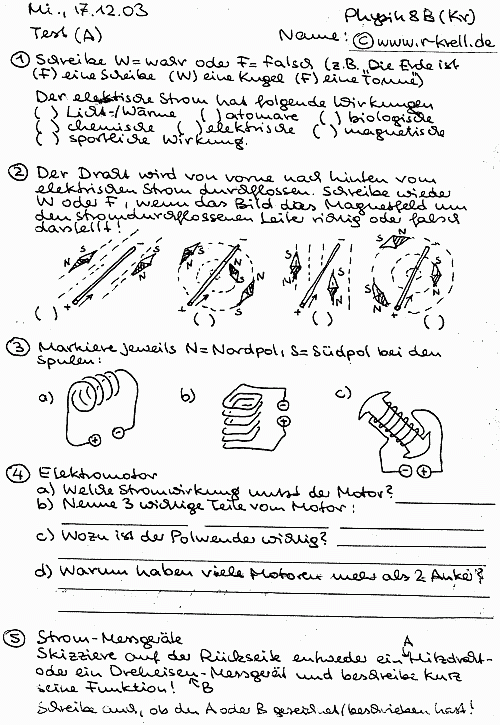 Mi., 17.12.03
Physik 8B (Kr)
Test (A)
Name: © www.r-krell.de
① Schreibe W = wahr oder F = falsch (z.B. "Die Erde ist
(F) eine Scheibe (W) eine Kugel (F) eine Tonne")
Der elektrische Strom hat folgende Wirkungen
( ) Licht-/Wärme ( ) atomare ( ) biologische
( ) chemische ( ) elektrische ( ) magnetische
( ) sportliche Wirkung.
② Der Draht wird von vorne nach hinten vom
elektrischen Strom durchflossen. Schreibe wieder
W oder F, wenn das Bild das Magnetfeld um
den stromdurchflossenen Leiter richtig oder falsch
darstellt!
S N S N - +
S N S N S N - +
S N S N - +
S N S N S N - +
( ) ( ) ( ) ( )
③ Markiere jeweils N = Nordpol, S = Südpol bei den
Spulen:
a) b) c)
- +
- +
- +
④ Elektromotor
a) Welche Stromwirkung nutzt der Motor?
b) Nenne 3 wichtige Teile vom Motor:
c) Wozu ist der Polwender wichtig?
d) Warum haben viele Motoren mehr als 2 Anker?
⑤ Strom-Messgeräte
A
Skizziere auf der Rückseite entweder ein Hitzdraht-
oder ein Dreheisen-Messgerät und beschreibe kurz
seine Funktion! B
Schreibe auch, ob du A oder B gezeichnet/beschrieben hast!